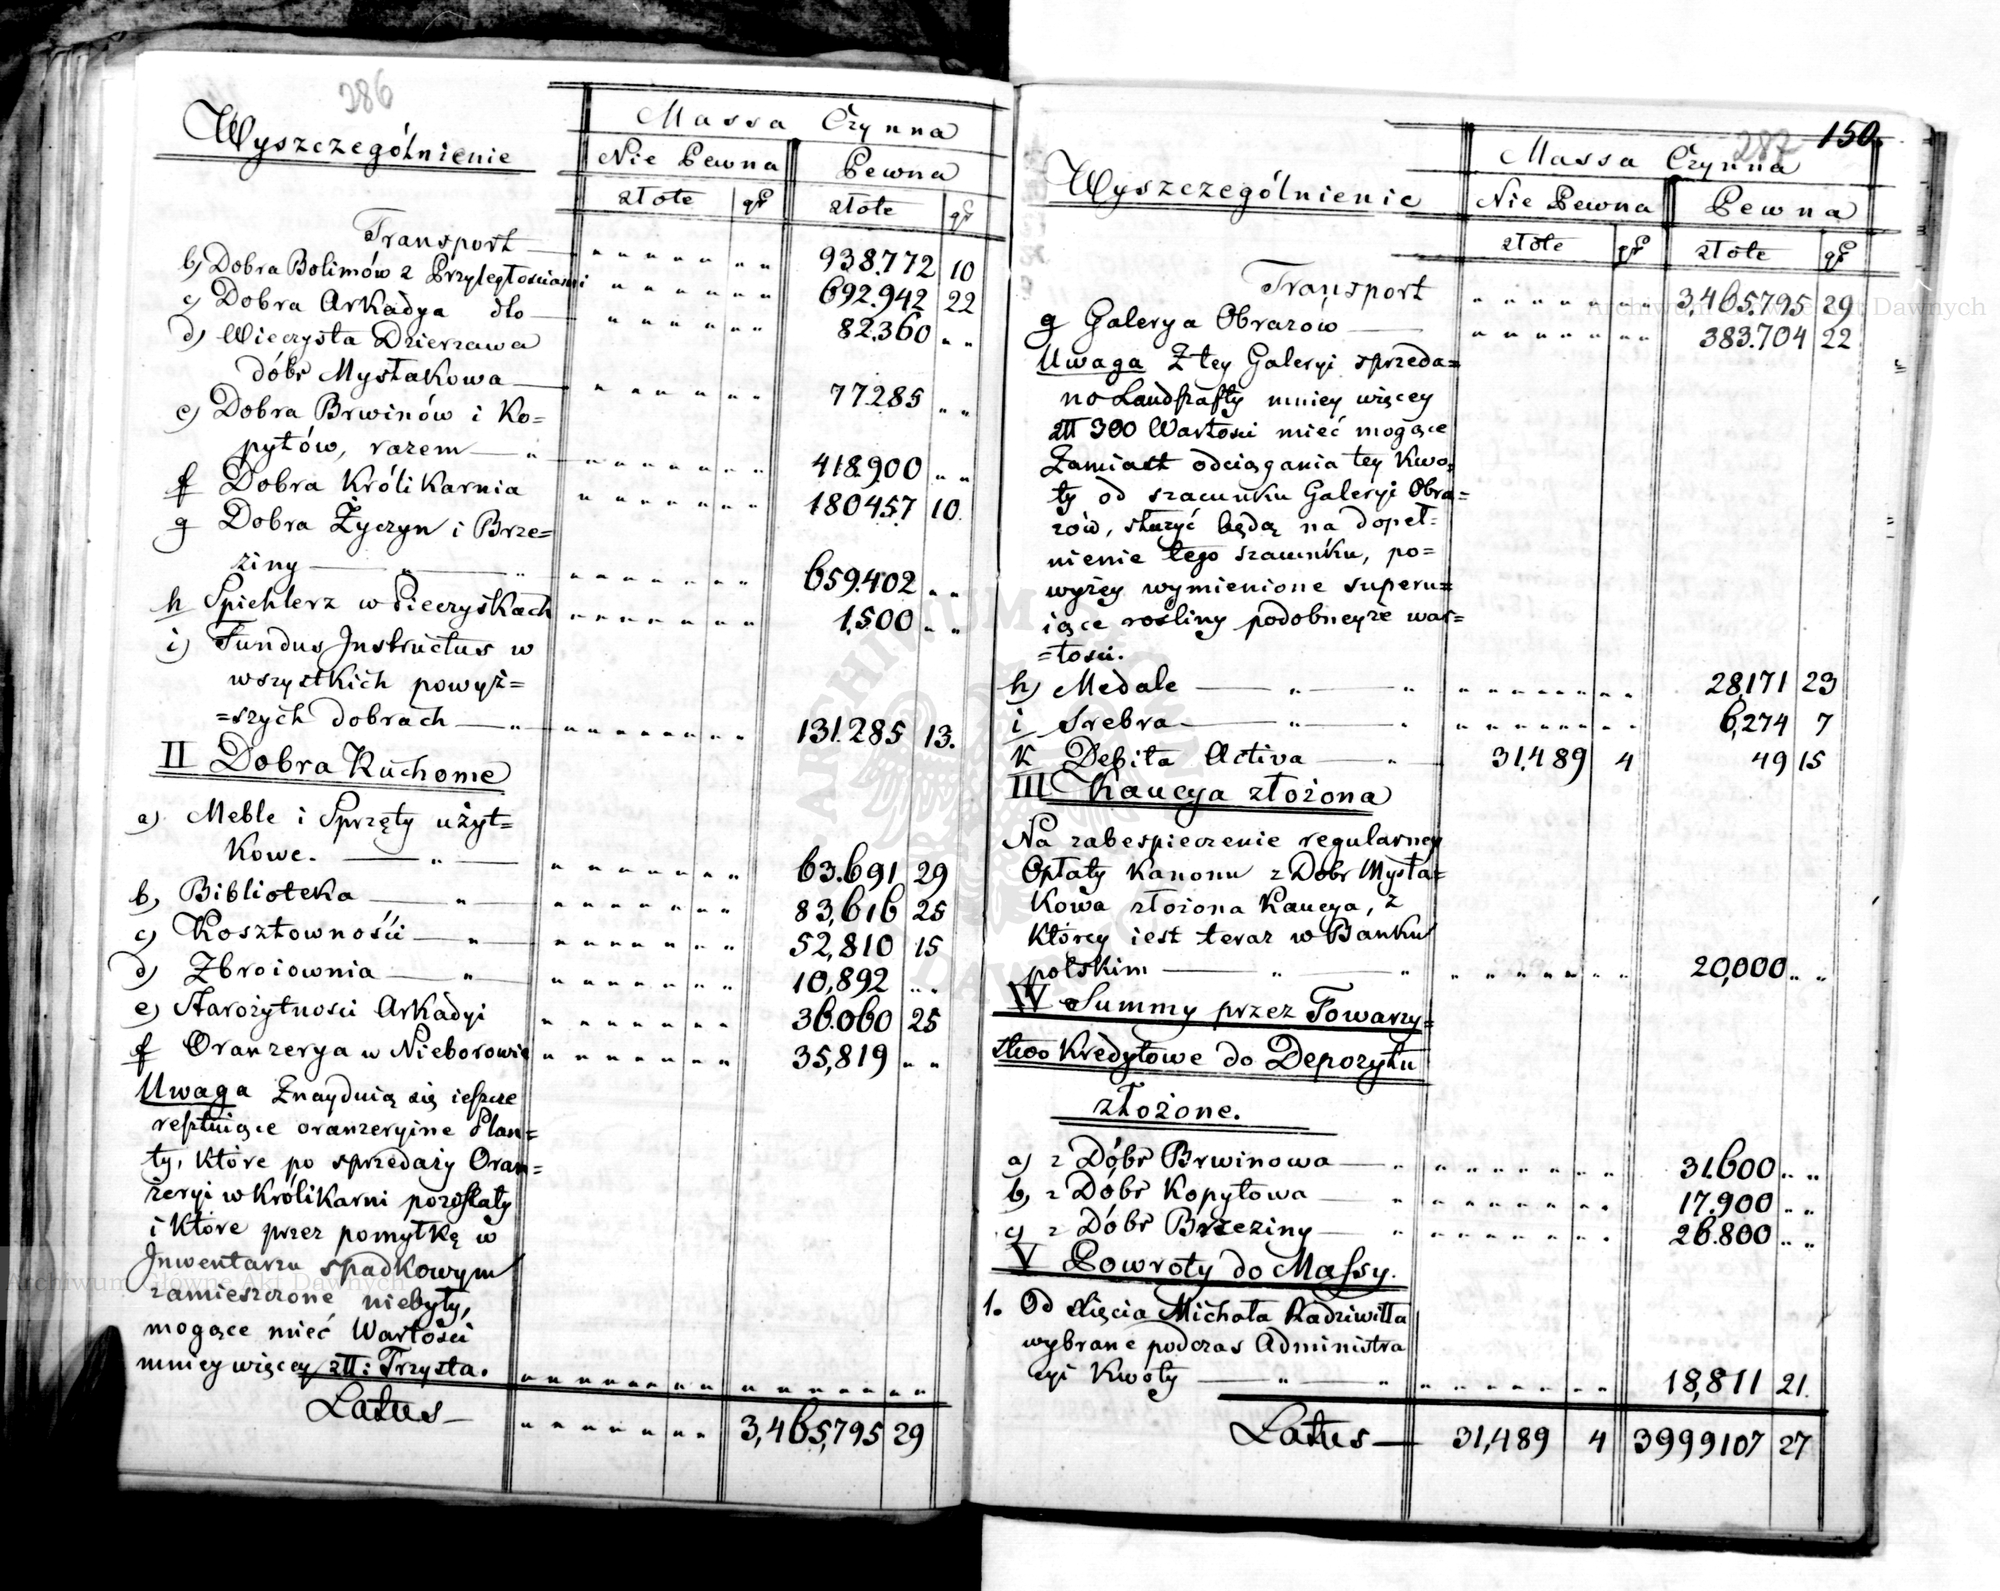 286
Massa Czynna
Wyszczególnienie
Nie Pewna Pewna
złote gr złote gr
Transport " " " " " " " 938.772 10
b) Dobra Bolimów z Przyległościami " " " " " " " 692.942 22
c) Dobra Arkadya dto " " " " " " " 82.360 " "
d) Wieczysta Dzierzawa
dóbr Mysłakowa " " " " " " " 77285 " "
e) Dobra Brwinów i Ko=
pytów, razem " " " " " " " " 418.900 " "
f Dobra Królikarnia " " " " " " " 180457 10
g Dobra Życzyn i Brze=
ziny " " " " " " " " " 659.402 " "
h Spichlerz w Pieczyskach " " " " " " " 1,500 " "
i) Fundus Instructus w
wszystkich powyż=
=szych dobrach " " " " " " " " 131.285 13.
II Dobra Ruchome
a) Meble i Sprzęty użyt=
kowe. " " " " " " " " 63.691 29
b, Biblioteka " " " " " " " " 83,616 25
c) Kosztownośći " " " " " " " " 52,810 15
d) Zbroiownia " " " " " " " " 10,892 " "
e) Starożytnosci Arkadyi " " " " " " " 36.060 25
f Oranżerya w Nieborowie " " " " " " " 35,819 " "
Uwaga Znayduią się ieszcze
resztuiące oranżeryine Plan=
ty, które po sprzedaży Oran=
żeryi w Królikarni pozostały
i które przez pomyłkę w
Inwentarzu spadkowym
zamieszczone niebyły,
mogące mieć Wartości
mniey więcey złł: Trzysta. " " " " " " " " " " " " " "
Latus " " " " " " " 3,465,795 29
287 150.
Massa Czynna
Wyszczególnienie
Nie Pewna Pewna
złote gr złote gr
Transport " " " " " " " 3,465.795 29
g Galerya Obrazów " " " " " " " 383.704 22
Uwaga Z tey Galeryi sprzeda=
no Landszafty mniey więcey
złł 300 Wartości mieć mogące
Zamiast odciągania tey Kwo=
ty od szacunku Galeryi Obra=
zów, służyć będą na dopeł=
nienie tego szacunku, po=
wyżey wymienione superu=
iące rośliny podobneyże war=
=tości.
h) Medale " " " " " " " " " 28,171 23
i Srebra " " " " " " " " " 6,274 7
k Debita Activa " 31,489 4 49 15
III Kaucya złożona
Na zabespieczenie regularney
Opłaty Kanonu z Dobr Mysła=
kowa złożona Kaucya, z
którey iest teraz w Banku
polskim " " " " " " " " " 20,000 " "
IV Summy przez Towarzy=
stwo Kredytowe do Depozytu
złożone.
a) z Dóbr Brwinowa " " " " " " " " 31.600 " "
b, z Dóbr Kopytowa " " " " " " " " 17.900 " "
c) z Dóbr Brzeziny " " " " " " " " 26.800 " "
V Powroty do Massy.
1. Od Xięcia Michała Radziwiłła
wybrane podczas Administra
cyi Kwoty " " " " " " " " " 18,811 21.
Latus 31,489 4 3999107 27
Archiwum Główne Akt Dawnych
Archiwum Główne Akt Dawnych
ARCHIWUM GŁÓWNE AKT DAWNYCH